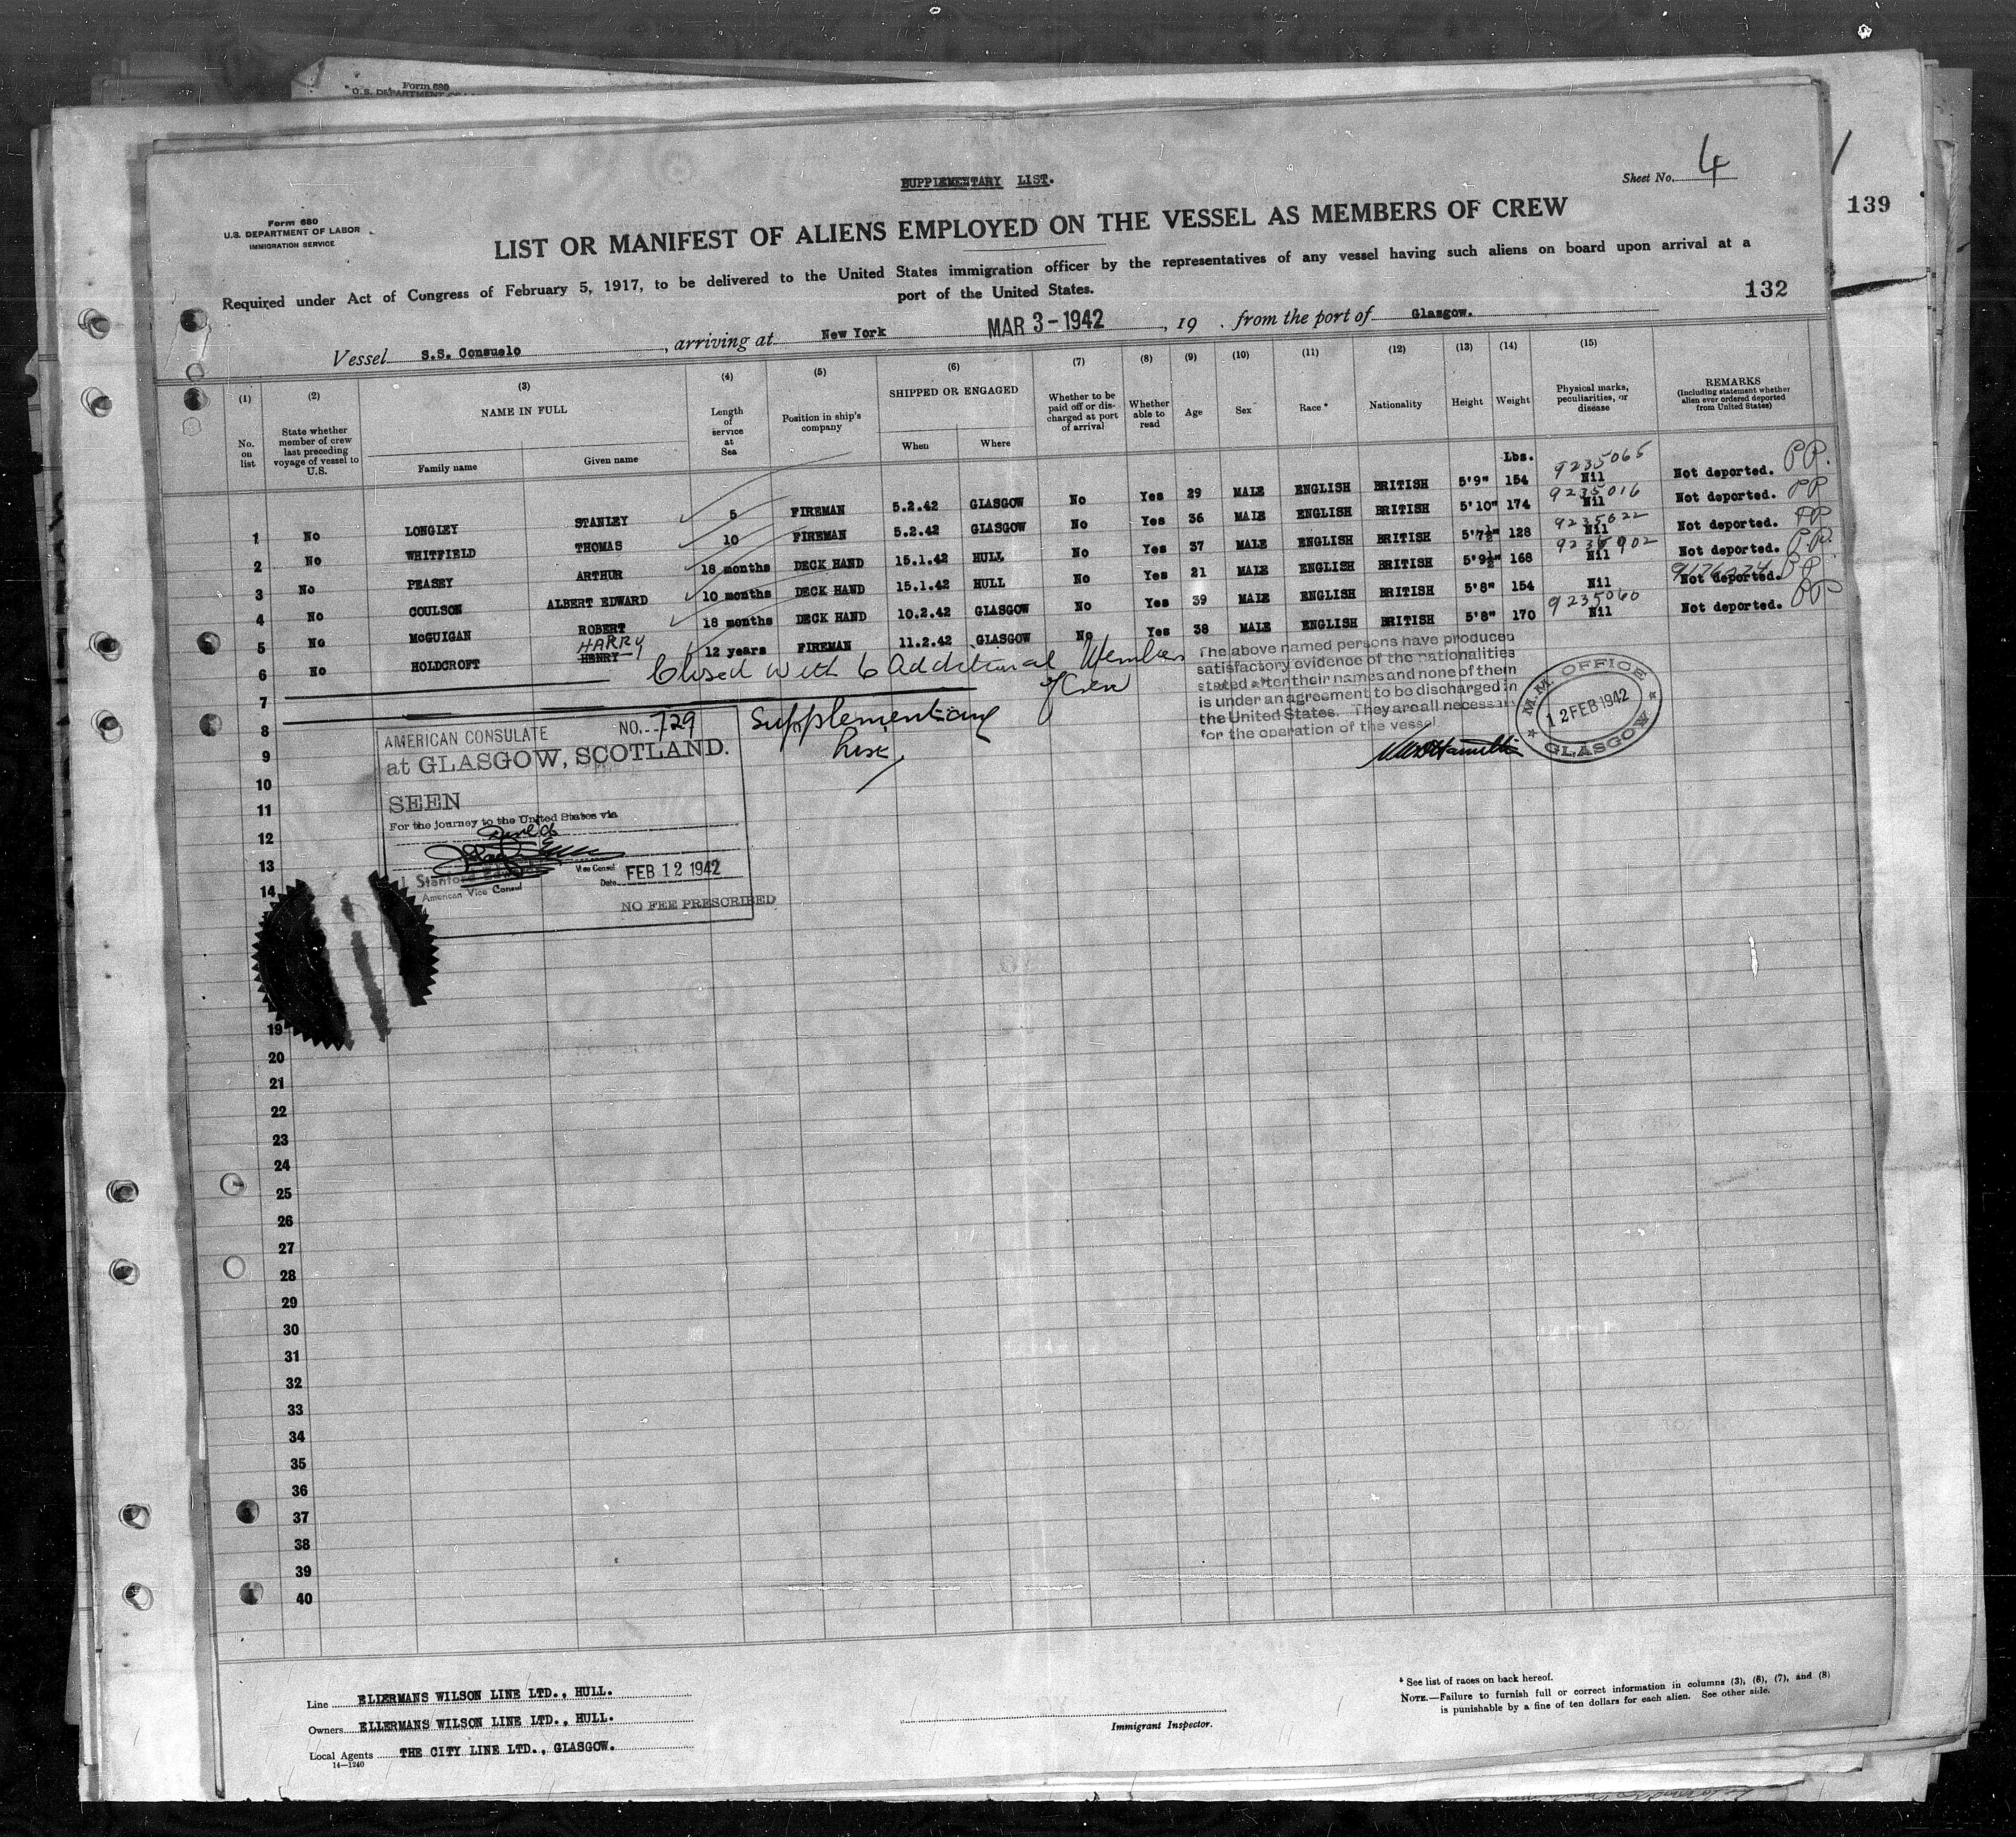 Form 680
U.S. DEPARTMENT OF LABOR
Form 680
U.S. DEPARTMENT OF LABOR
IMMIGRATION SERVICE
SUPPLEMENTARY LIST.
Sheet No. 4
139
LIST OR MANIFEST OF ALIENS EMPLOYED ON THE VESSEL AS MEMBERS OF CREW
Required under Act of Congress of February 5, 1917, to be delivered to the United States immigration officer by the representatives of any vessel having such aliens on board upon arrival at a
port of the United States.
132
Vessel S.S. Consuelo, arriving at New York MAR 3-1942, 19 . from the port of Glasgow.
(1) (2) (3) (4) (5) (6) (7) (8) (9) (10) (11) (12) (13) (14) (15)
No. on list
State whether member of crew last preceding voyage of vessel to U.S.
NAME IN FULL
Family name
Given name
Length of service at Sea
Position in ship's company
SHIPPED OR ENGAGED
When
Where
Whether to be paid off or discharged at port of arrival
Whether able to read
Age
Sex
Race *
Nationality
Height
Weight
Physical marks, peculiarities, or disease
REMARKS
(Including statement whether alien ever ordered deported from United States)
Lbs.
1 No LONGLEY STANLEY 5 FIREMAN 5.2.42 GLASGOW No Yes 29 MALE ENGLISH BRITISH 5'9" 154 9235065 Nil Not deported. PP.
2 No WHITFIELD THOMAS 10 FIREMAN 5.2.42 GLASGOW No Yes 36 MALE ENGLISH BRITISH 5'10" 174 9235016 Nil Not deported. PP
3 No PEASEY ARTHUR 18 months DECK HAND 15.1.42 HULL No Yes 37 MALE ENGLISH BRITISH 5'7½" 128 9235022 Nil Not deported. PP
4 No COULSON ALBERT EDWARD 10 months DECK HAND 15.1.42 HULL No Yes 21 MALE ENGLISH BRITISH 5'9½" 168 Nil Not deported. PP.
5 No McGUIGAN ROBERT 18 months DECK HAND 10.2.42 GLASGOW No Yes 39 MALE ENGLISH BRITISH 5'8" 154 Nil Not deported. PP
6 No HOLDCROFT HARRY HENRY 12 years FIREMAN 11.2.42 GLASGOW No Yes 38 MALE ENGLISH BRITISH 5'8" 170 9235060 Nil Not deported. PP
Closed with 6 Additional Members
of Crew
Supplementary
List
The above named persons have produced
satisfactory evidence of the nationalities
stated after their names and none of them
is under an agreement to be discharged in
the United States. They are all necessary
for the operation of the vessel.
M.M. OFFICE
12 FEB 1942
GLASGOW
AMERICAN CONSULATE NO. 729
at GLASGOW, SCOTLAND.
SEEN
For the journey to the United States via
Vice Consul
Date FEB 12 1942
American Vice Consul
NO FEE PRESCRIBED
7
8
9
10
11
12
13
14
19
20
21
22
23
24
25
26
27
28
29
30
31
32
33
34
35
36
37
38
39
40
Line ELLERMANS WILSON LINE LTD., HULL.
Owners ELLERMANS WILSON LINE LTD., HULL.
Local Agents THE CITY LINE LTD., GLASGOW.
14—1240
Immigrant Inspector.
* See list of races on back hereof.
NOTE.—Failure to furnish full or correct information in columns (3), (6), (7), and (8)
is punishable by a fine of ten dollars for each alien. See other side.